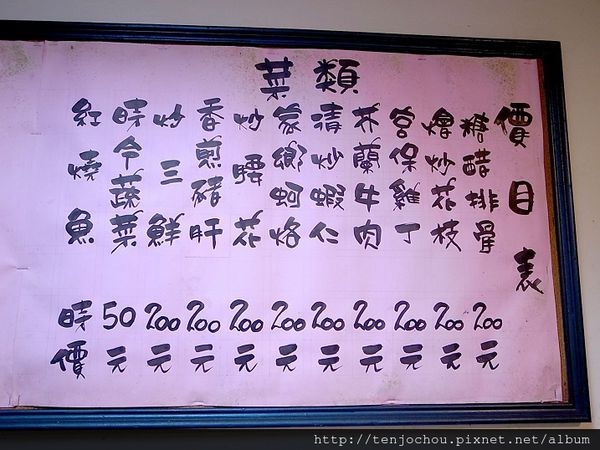 價目表
菜類
糖醋排骨 200元
燴炒花枝 200元
宮保雞丁 200元
芥蘭牛肉 200元
清炒蝦仁 200元
蒙鄉蚵烙 200元
炒腰花 200元
香煎豬肝 200元
炒三鮮 200元
時令蔬菜 50元
紅燒魚 時價
http://tenjochou.pixnet.net/album